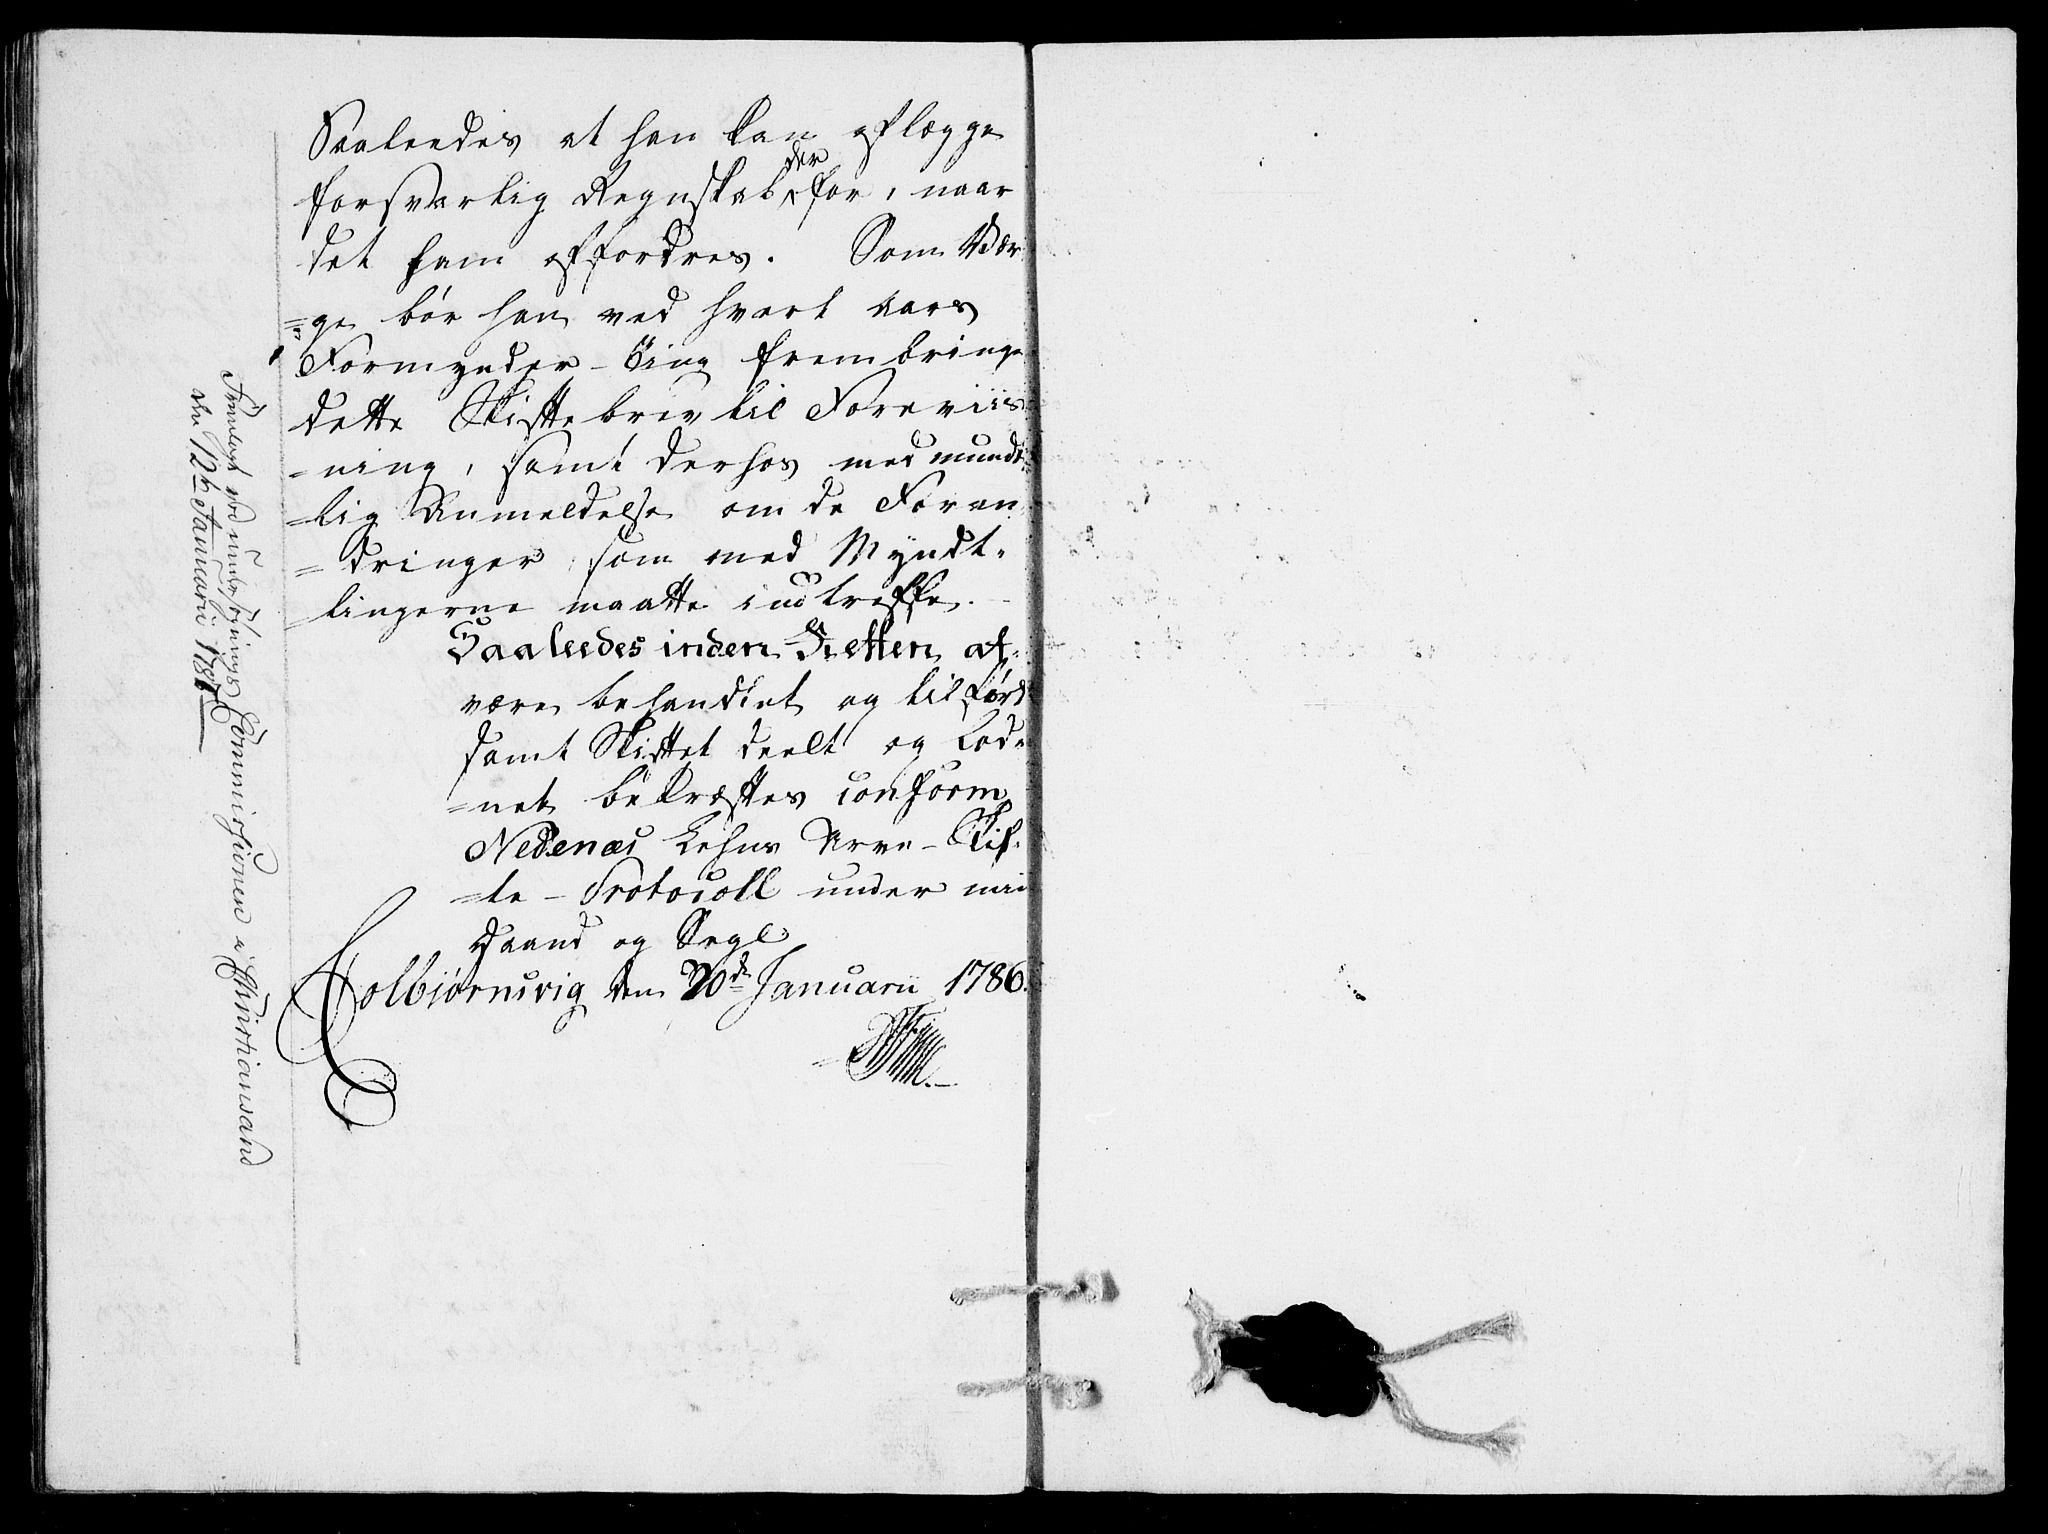 Saaleedes at han kan aflægge
forsvarlig Regnskab derfor, naar
det ham affordres. Som Vær
=ge bør han ved hvert Aars
Formynder-Ting frembringe
dette Skiftebrev til Foreviis
=ning, samt derhos med mundt
=lig Anmeldelse om de Foran
=dringer som med Myndt-
lingerne maatte indtreffe.
Saaleedes inden Retten at
være behandlet og tilført
samt Skiftet deelt og Lod-
=net bekræftes conform
Nedenæs Lehns Arve-Skif-
=te-Protocoll under min
Haand og Segl
Colbiørnsvig den 20de Januarii 1786.
Fremlagt ved undersøgnings Commissionen i Christiansand
den 12te Januarii 1787